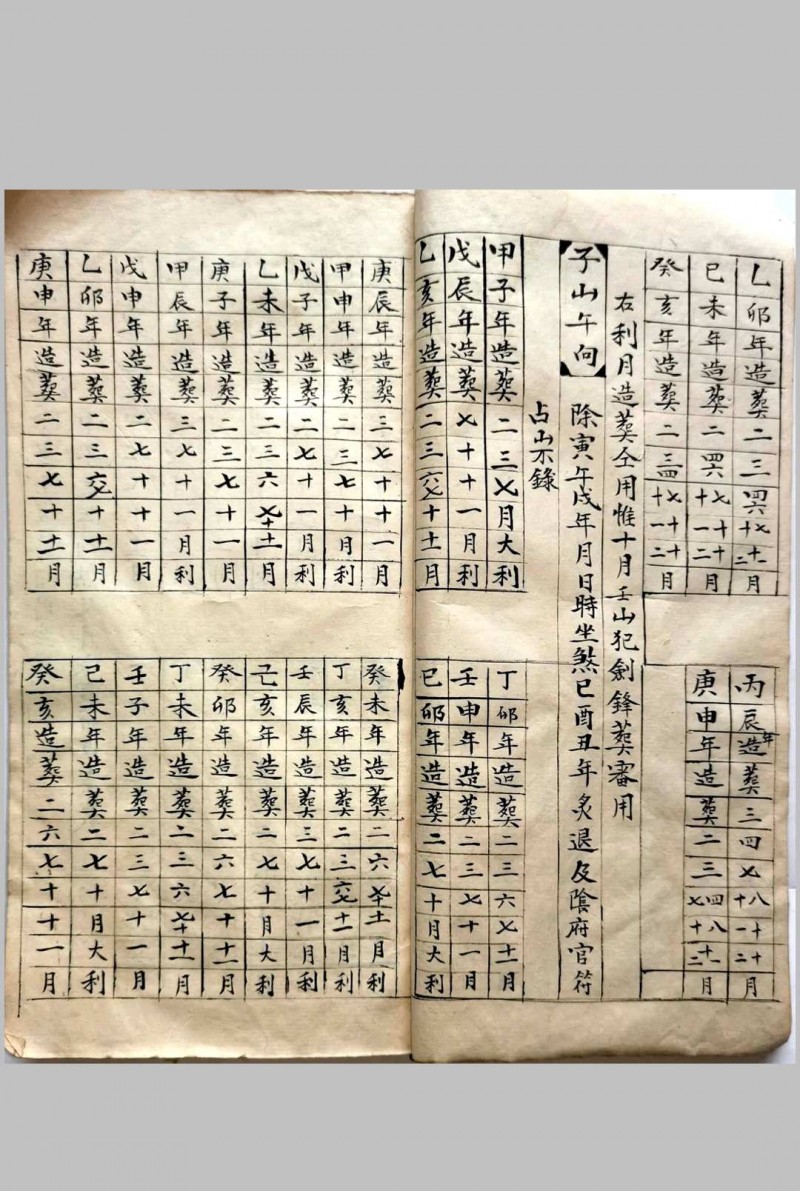 乙卯年造葬二三四六七十十一十二月
己未年造葬二四六七十十一十二月
癸亥年造葬二三四七十十一十二月
丙辰年造葬三四七八十十一十二月
庚申年造葬二三四七八十十一十二月
右利月造葬仝用惟十月壬山犯劍鋒葬審用
子山午向
除寅午戌年月日時坐煞巳酉丑年炙退及陰府官符
占山不錄
甲子年造葬二三七月大利
戊辰年造葬七十十一月利
乙亥年造葬二三六七十十一月
丁卯年造葬二三六七十一月
壬申年造葬二三七十一月
己卯年造葬二七十月大利
庚辰年造葬三七十十一月
甲申年造葬二三七十月利
戊子年造葬二七十一月利
乙未年造葬二三六七十十一月
庚子年造葬二三七十一月
甲辰年造葬三七十一月利
戊申年造葬二七十十一月
乙卯年造葬二三六七十十一月
庚申年造葬二三七十十一月
癸未年造葬二六七十十一月利
丁亥年造葬二三六七十一月利
壬辰年造葬三七十一月利
己亥年造葬二七十月大利
癸卯年造葬二六七十十一月
丁未年造葬二三六七十十一月
壬子年造葬二三七十一月
己未年造葬二七十月大利
癸亥造葬二六七十十一月